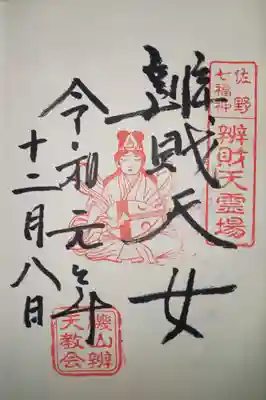 佐野
七福神
辨財天霊場
辨財天女
令和元年
十二月八日
磯山辨
天教会